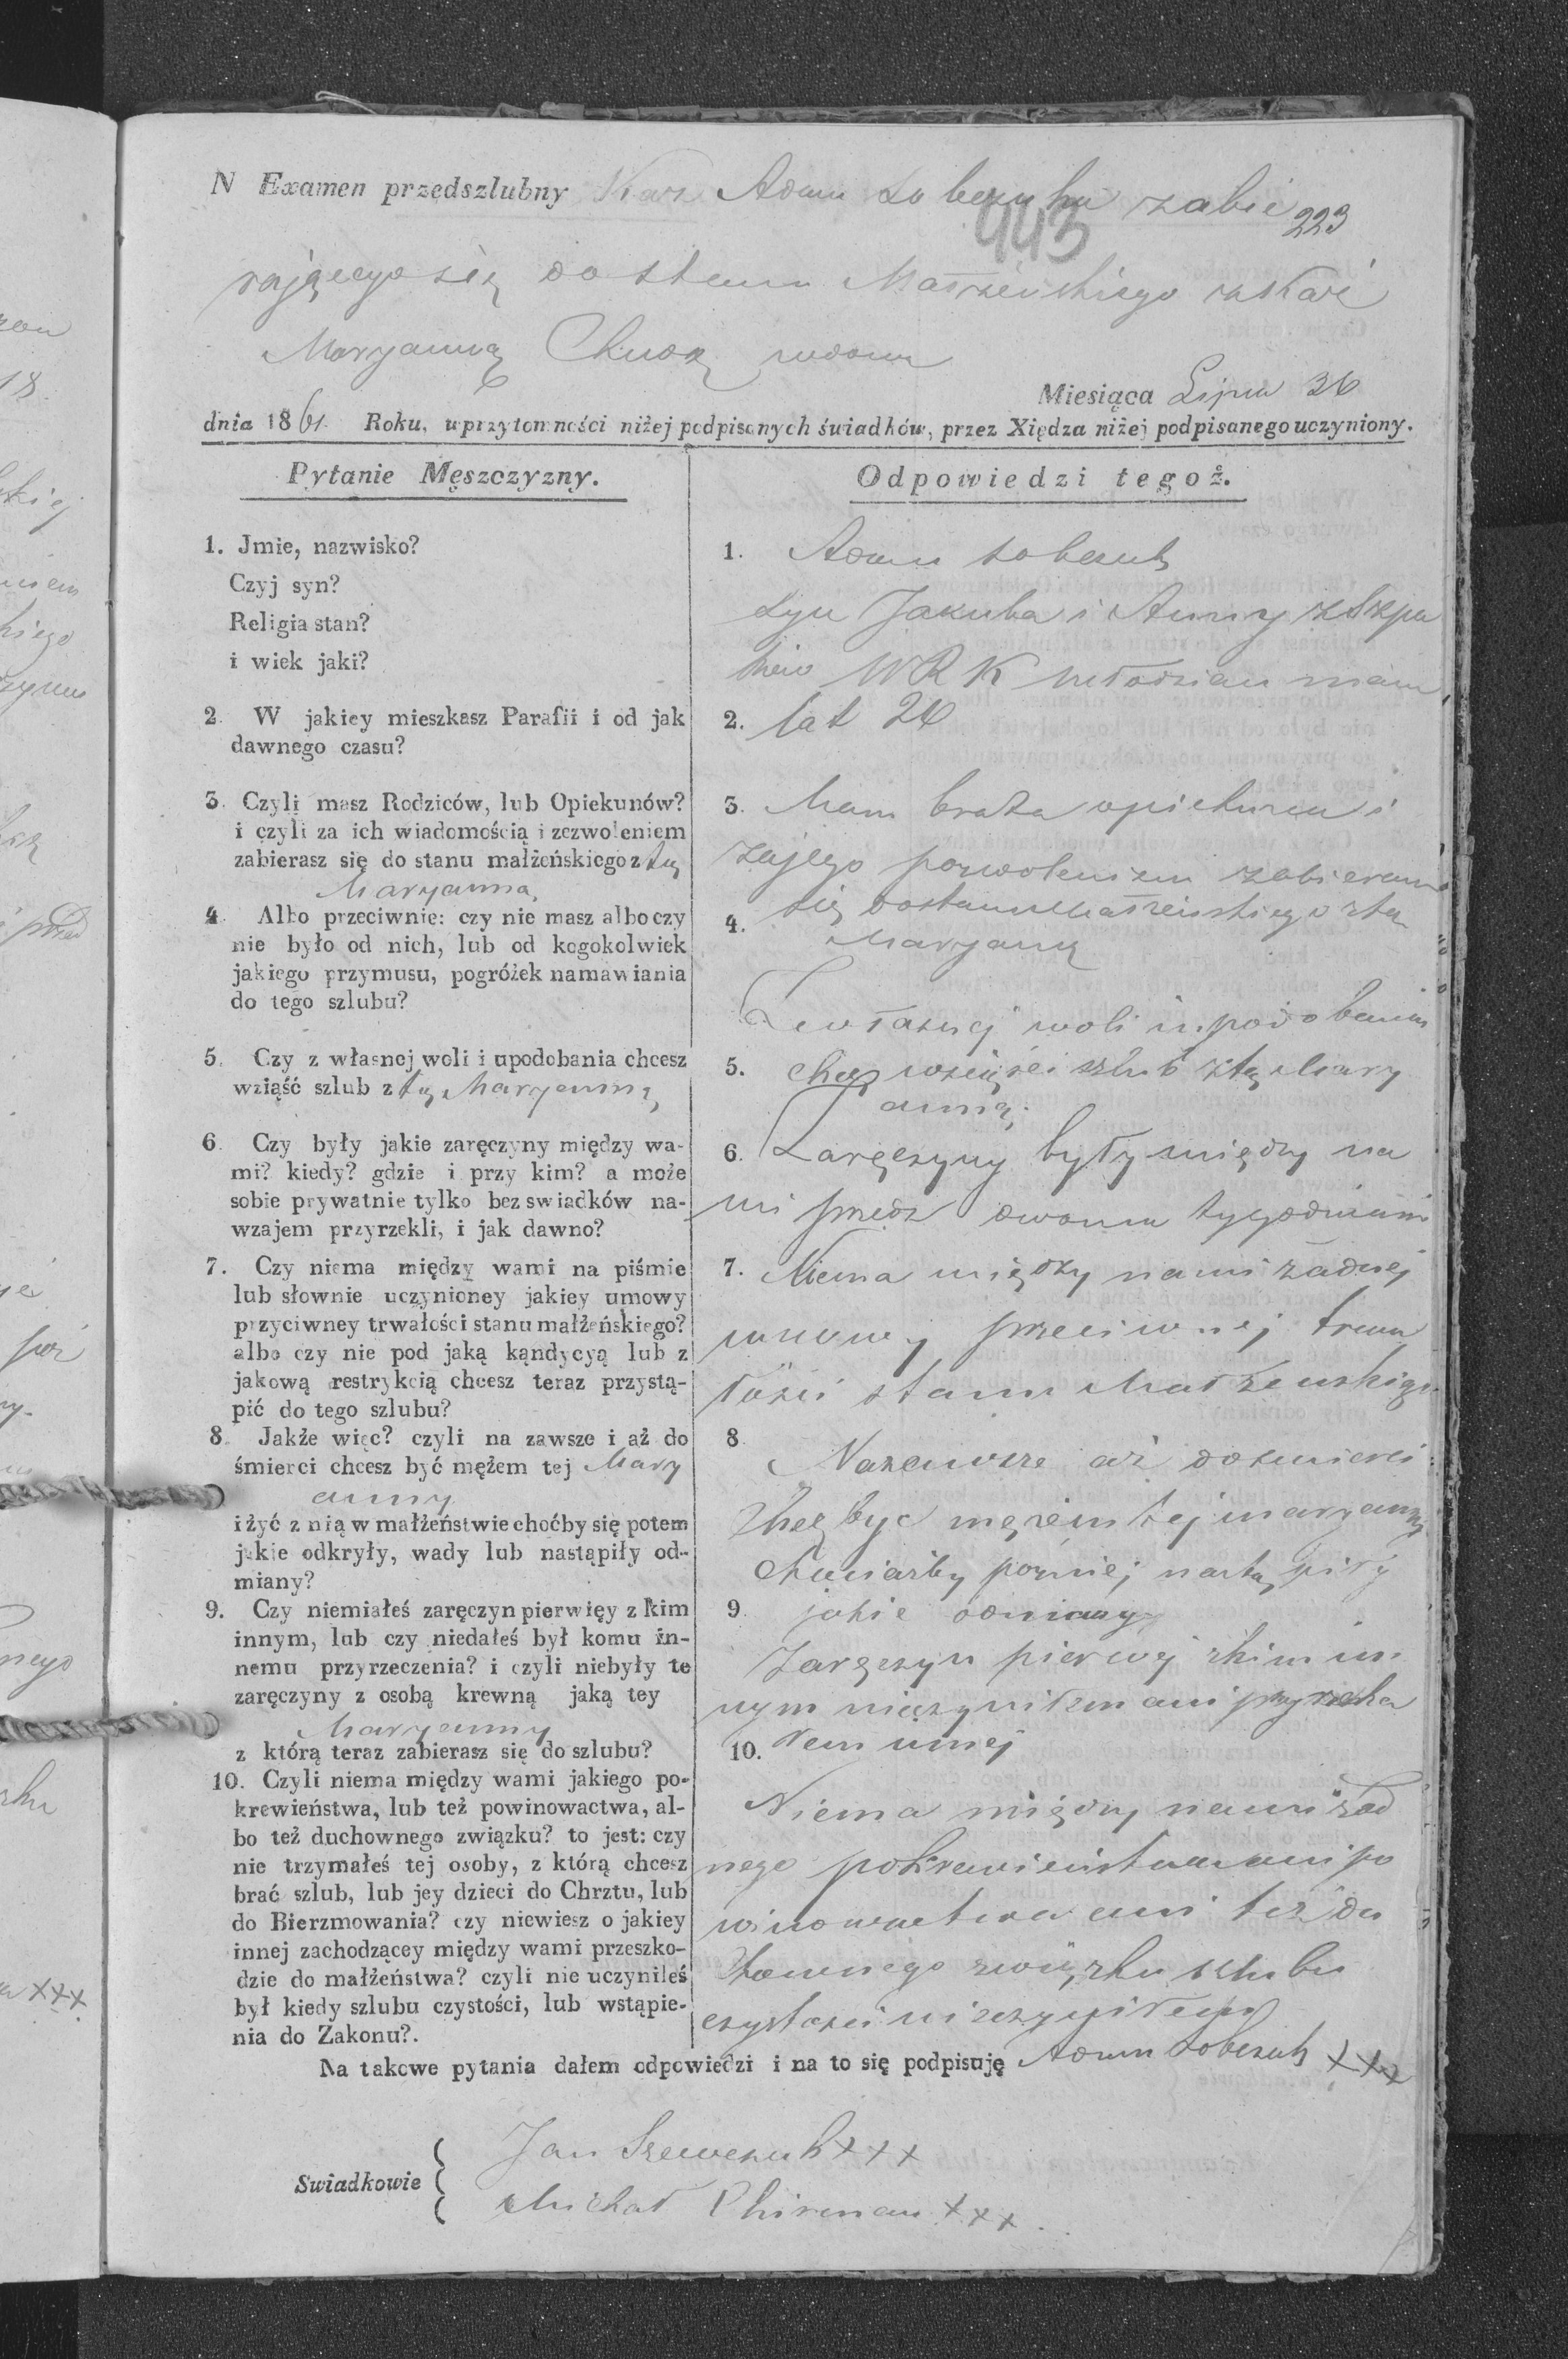 N Examen przedszlubny Adam zabie
223
443
rającego się do stanu Małżeńskiego
Maryanną wdową
Miesiąca Lipca 26
dnia 1861. Roku, w przytomności niżej podpisanych świadków, przez Xiędza niżej podpisanego uczyniony.
Pytanie Męszczyzny.
1. Jmie, nazwisko?
Czyj syn?
Religia stan?
i wiek jaki?
2. W jakiey mieszkasz Parafii i od jak
dawnego czasu?
3. Czyli masz Rodziców, lub Opiekunów?
i czyli za ich wiadomością i zezwoleniem
zabierasz się do stanu małżeńskiego z tą
Maryanną
4. Albo przeciwnie: czy nie masz albo czy
nie było od nich, lub od kogokolwiek
jakiego przymusu, pogróżek namawiania
do tego szlubu?
5. Czy z własnej woli i upodobania chcesz
wziąść szlub z tą Maryanną
6. Czy były jakie zaręczyny między wa-
mi? kiedy? gdzie i przy kim? a może
sobie prywatnie tylko bez swiadków na-
wzajem przyrzekli, i jak dawno?
7. Czy niema między wami na piśmie
lub słownie uczynioney jakiey umowy
przyciwney trwałości stanu małżeńskiego?
albo czy nie pod jaką kąndycyą lub z
jakową restrykcią chcesz teraz przystą-
pić do tego szlubu?
8. Jakże więc? czyli na zawsze i aż do
śmierci chcesz być mężem tej Mary
anny
i żyć z nią w małżeństwie choćby się potem
jakie odkryły, wady lub nastąpiły od-
miany?
9. Czy niemiałeś zaręczyn pierwięy z kim
innym, lub czy niedałeś był komu in-
nemu przyrzeczenia? i czyli niebyły te
zaręczyny z osobą krewną jaką tey
Maryanny
z którą teraz zabierasz się do szlubu?
10. Czyli niema między wami jakiego po-
krewieństwa, lub też powinowactwa, al-
bo też duchownego związku? to jest: czy
nie trzymałeś tej osoby, z którą chcesz
brać szlub, lub jey dzieci do Chrztu, lub
do Bierzmowania? czy niewiesz o jakiey
innej zachodzącey między wami przeszko-
dzie do małżeństwa? czyli nie uczyniłeś
był kiedy szlubu czystości, lub wstąpie-
nia do Zakonu?.
Odpowiedzi tegoż.
1. Adam Łobczuk
syn Jakuba i Anny z Szpa
ków W R K młodzian mam
2. lat 26
3. Mam brata opiekuna i
zajego pozwoleniem zabieram
4. się dostanu Małżeńskiego ztą
Maryanną
Zewłasnej woli i upodobania
5. chcę wziąść szlub ztą Mary
anną.
6. Zaręczyny były między na
mi przed dwoma tygodniami
7. Niema między nami żadnej
umowy przeciwnej trwa
łości stanu Małżeńskiego
8. Nazawsze aż dośmierci
chcę być mężem tej maryanny
chociażby pożniej nastąpiły
9. jakie odmiany
Zaręczyn pierwej zkim in
nym nieczyniłem ani przyrzeka
10. łem innej
Niema między nami żad
nego pokrewieństwa ani po
winowactwa ani też du
chownego związku szlubu
czystości nieczyniłem
Na takowe pytania dałem odpowiedzi i na to się podpisuję Adam Łobczuk XXX
Swiadkowie { Jan Szewczuk XXX
Michał XXX